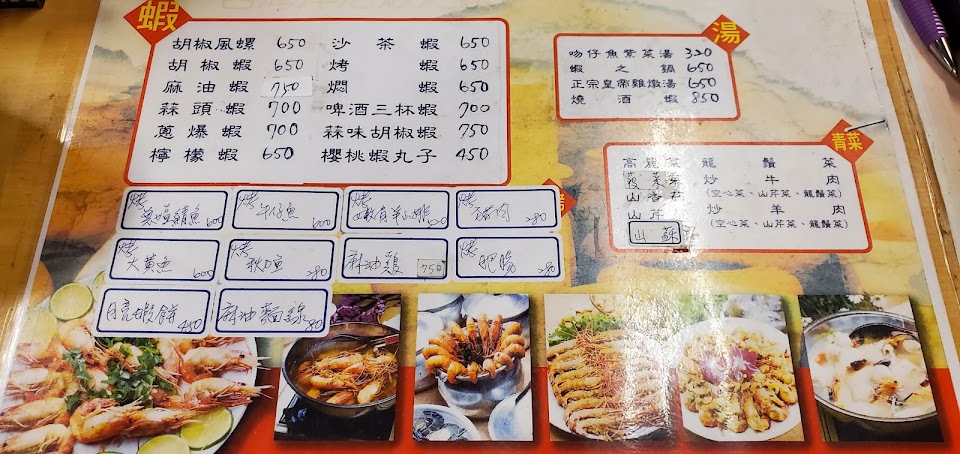 蝦
胡椒風螺 650
胡椒蝦 650
麻油蝦 750
蒜頭蝦 700
蔥爆蝦 700
檸檬蝦 650
沙茶蝦 650
烤蝦 650
燜蝦 650
啤酒三杯蝦 700
蒜味胡椒蝦 750
櫻桃蝦丸子 450
湯
吻仔魚紫菜湯 320
蝦之鍋 650
正宗皇帝雞燉湯 650
燒酒蝦 850
青菜
高麗菜 龍鬚菜
菠菜 炒牛肉
山香菜 (空心菜、山芹菜、龍鬚菜)
山芹 炒羊肉
山蘇 (空心菜、山芹菜、龍鬚菜)
烤
烤 鯖魚 600
烤 午仔魚 600
烤
烤 280
烤 大黃魚 600
烤 秋刀魚 280
麻油雞 750
烤 肥腸 280
月亮蝦餅 450
麻油麵線 80